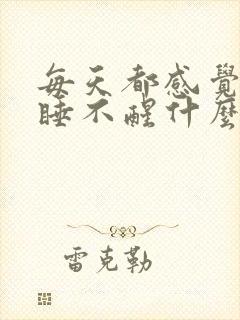 每天都感覺
睡不醒什麼
雷克勒